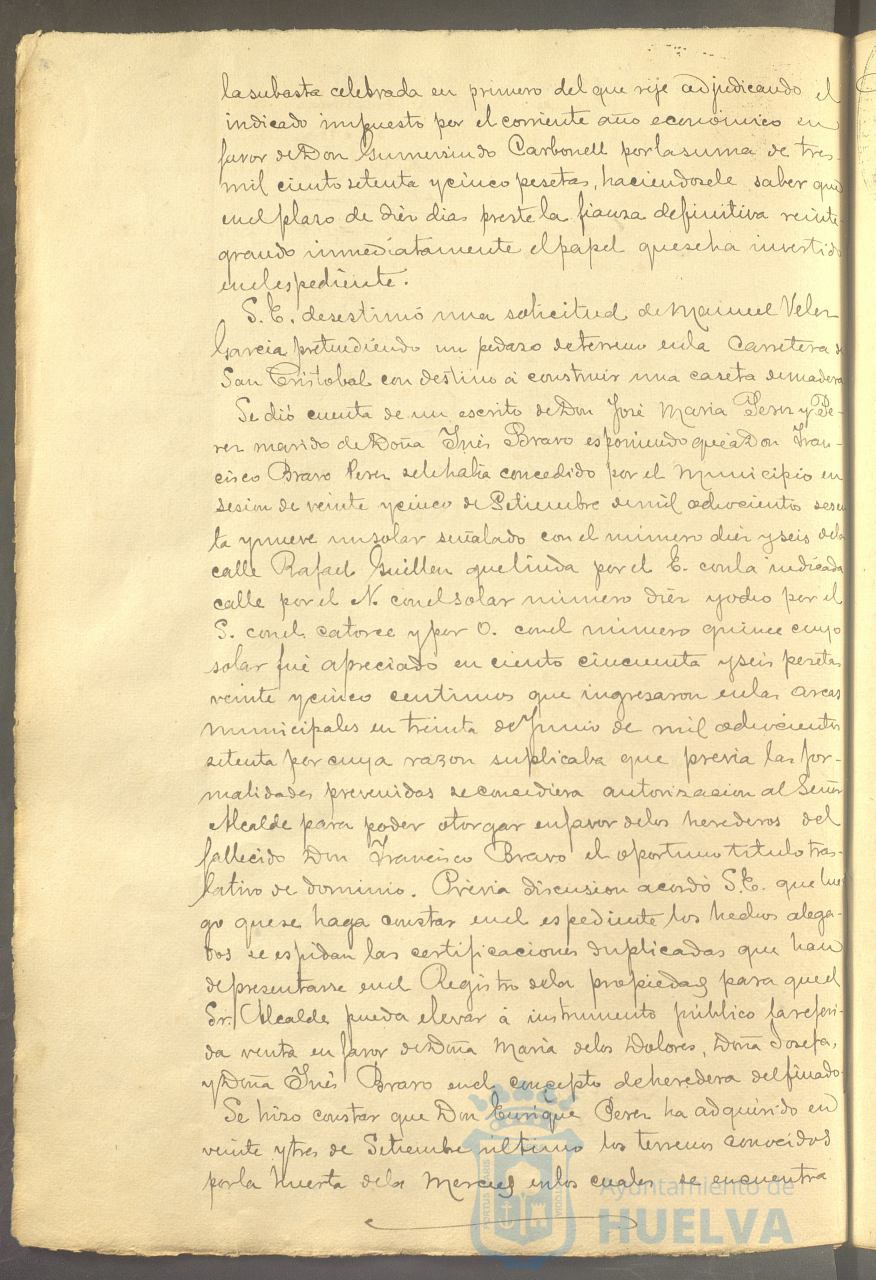 la subasta celebrada en primero del que rije adjudicando el
indicado impuesto por el corriente año económico en
favor de Don Gumersindo Carbonell por la suma de tres
mil ciento setenta y cinco pesetas, haciendosele saber que
en el plazo de diez dias preste la fianza definitiva reinte-
grando inmediatamente el papel que se ha invertido
en el espediente.
S. E. desestimó una solicitud de Manuel Velez
Garcia pretendiendo un pedazo de terreno en la Carretera de
San Cristobal con destino á construir una caseta de madera
Se dió cuenta de un escrito de Don José Maria Perez y Pe-
rez marido de Doña Inés Bravo esponiendo que á Don Fran-
cisco Bravo Perez se le habia concedido por el Municipio en
sesion de veinte y cinco de Setiembre de mil ochocientos sesen
ta y nueve un solar señalado con el número diez y seis de la
calle Rafael Guillen que linda por el E. con la indicada
calle por el N. con el solar número diez y ocho por el
S. con el catorce y por O. con el número quince cuyo
solar fué apreciado en ciento cincuenta y seis pesetas
veinte y cinco centimos que ingresaron en las arcas
municipales en treinta de Junio de mil ochocientos
setenta por cuya razon suplicaba que previa las for-
malidades prevenidas se concediera autorizacion al Señor
Alcalde para poder otorgar en favor de los herederos del
fallecido Don Francisco Bravo el oportuno titulo tras-
lativo de dominio. Prévia discusion acordó S. E. que lue
go que se haga constar en el espediente los hechos alega-
dos se espidan las certificaciones duplicadas que han
de presentarse en el Registro de la propiedad para que el
Sr. Alcalde pueda elevar á instrumento público la referi-
da venta en favor de Doña Maria de los Dolores, Doña Josefa,
y Doña Inés Bravo en el concepto de heredera del finado.
Se hizo constar que Don Enrique Perez ha adquirido en
veinte y tres de Setiembre último los terrenos conocidos
por la Huerta de la Merced en los cuales se encuentra
Ayuntamiento de
HUELVA